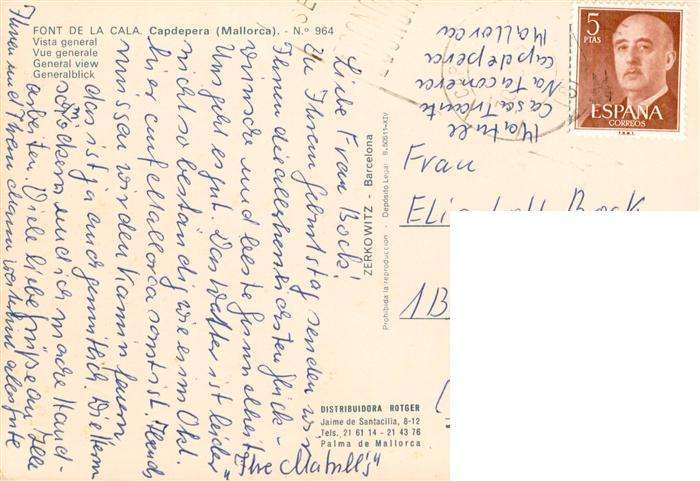 FONT DE LA CALA. Capdepera (Mallorca). - N.º 964
Vista general
Vue generale
General view
Generalblick
Liebe Frau Bock!
Zu Ihrem Geburtstag senden wir
Ihnen die allerherzlichsten Glück-
wünsche und beste Gesundheit.
Uns geht es gut. Das Wetter ist leider
nicht so beständig wie es im Okt.
hier auf Mallorca sonst ist. Abends
müssen wir den Kamin feuern,
das ist ja auch gemütlich. Die Herrn
schmökern und ich mache Hand-
arbeiten. Viele liebe Grüße an Sie
Ihnen und Ihrem Mann weiterhin alles Gute
"Ihre Matull's"
ZERKOWITZ - Barcelona
Prohibida la reproducción - Depósito Legal B. 50511-XIV
DISTRIBUIDORA ROTGER
Jaime de Santacilia, 8-12
Tels. 21 61 14 - 21 43 76
Palma de Mallorca
Matull
Casa
Na Taconera
Capdepera
Mallorca
5
PTAS
ESPAÑA
CORREOS
F.N.M.T.
Frau
Bock
1 B